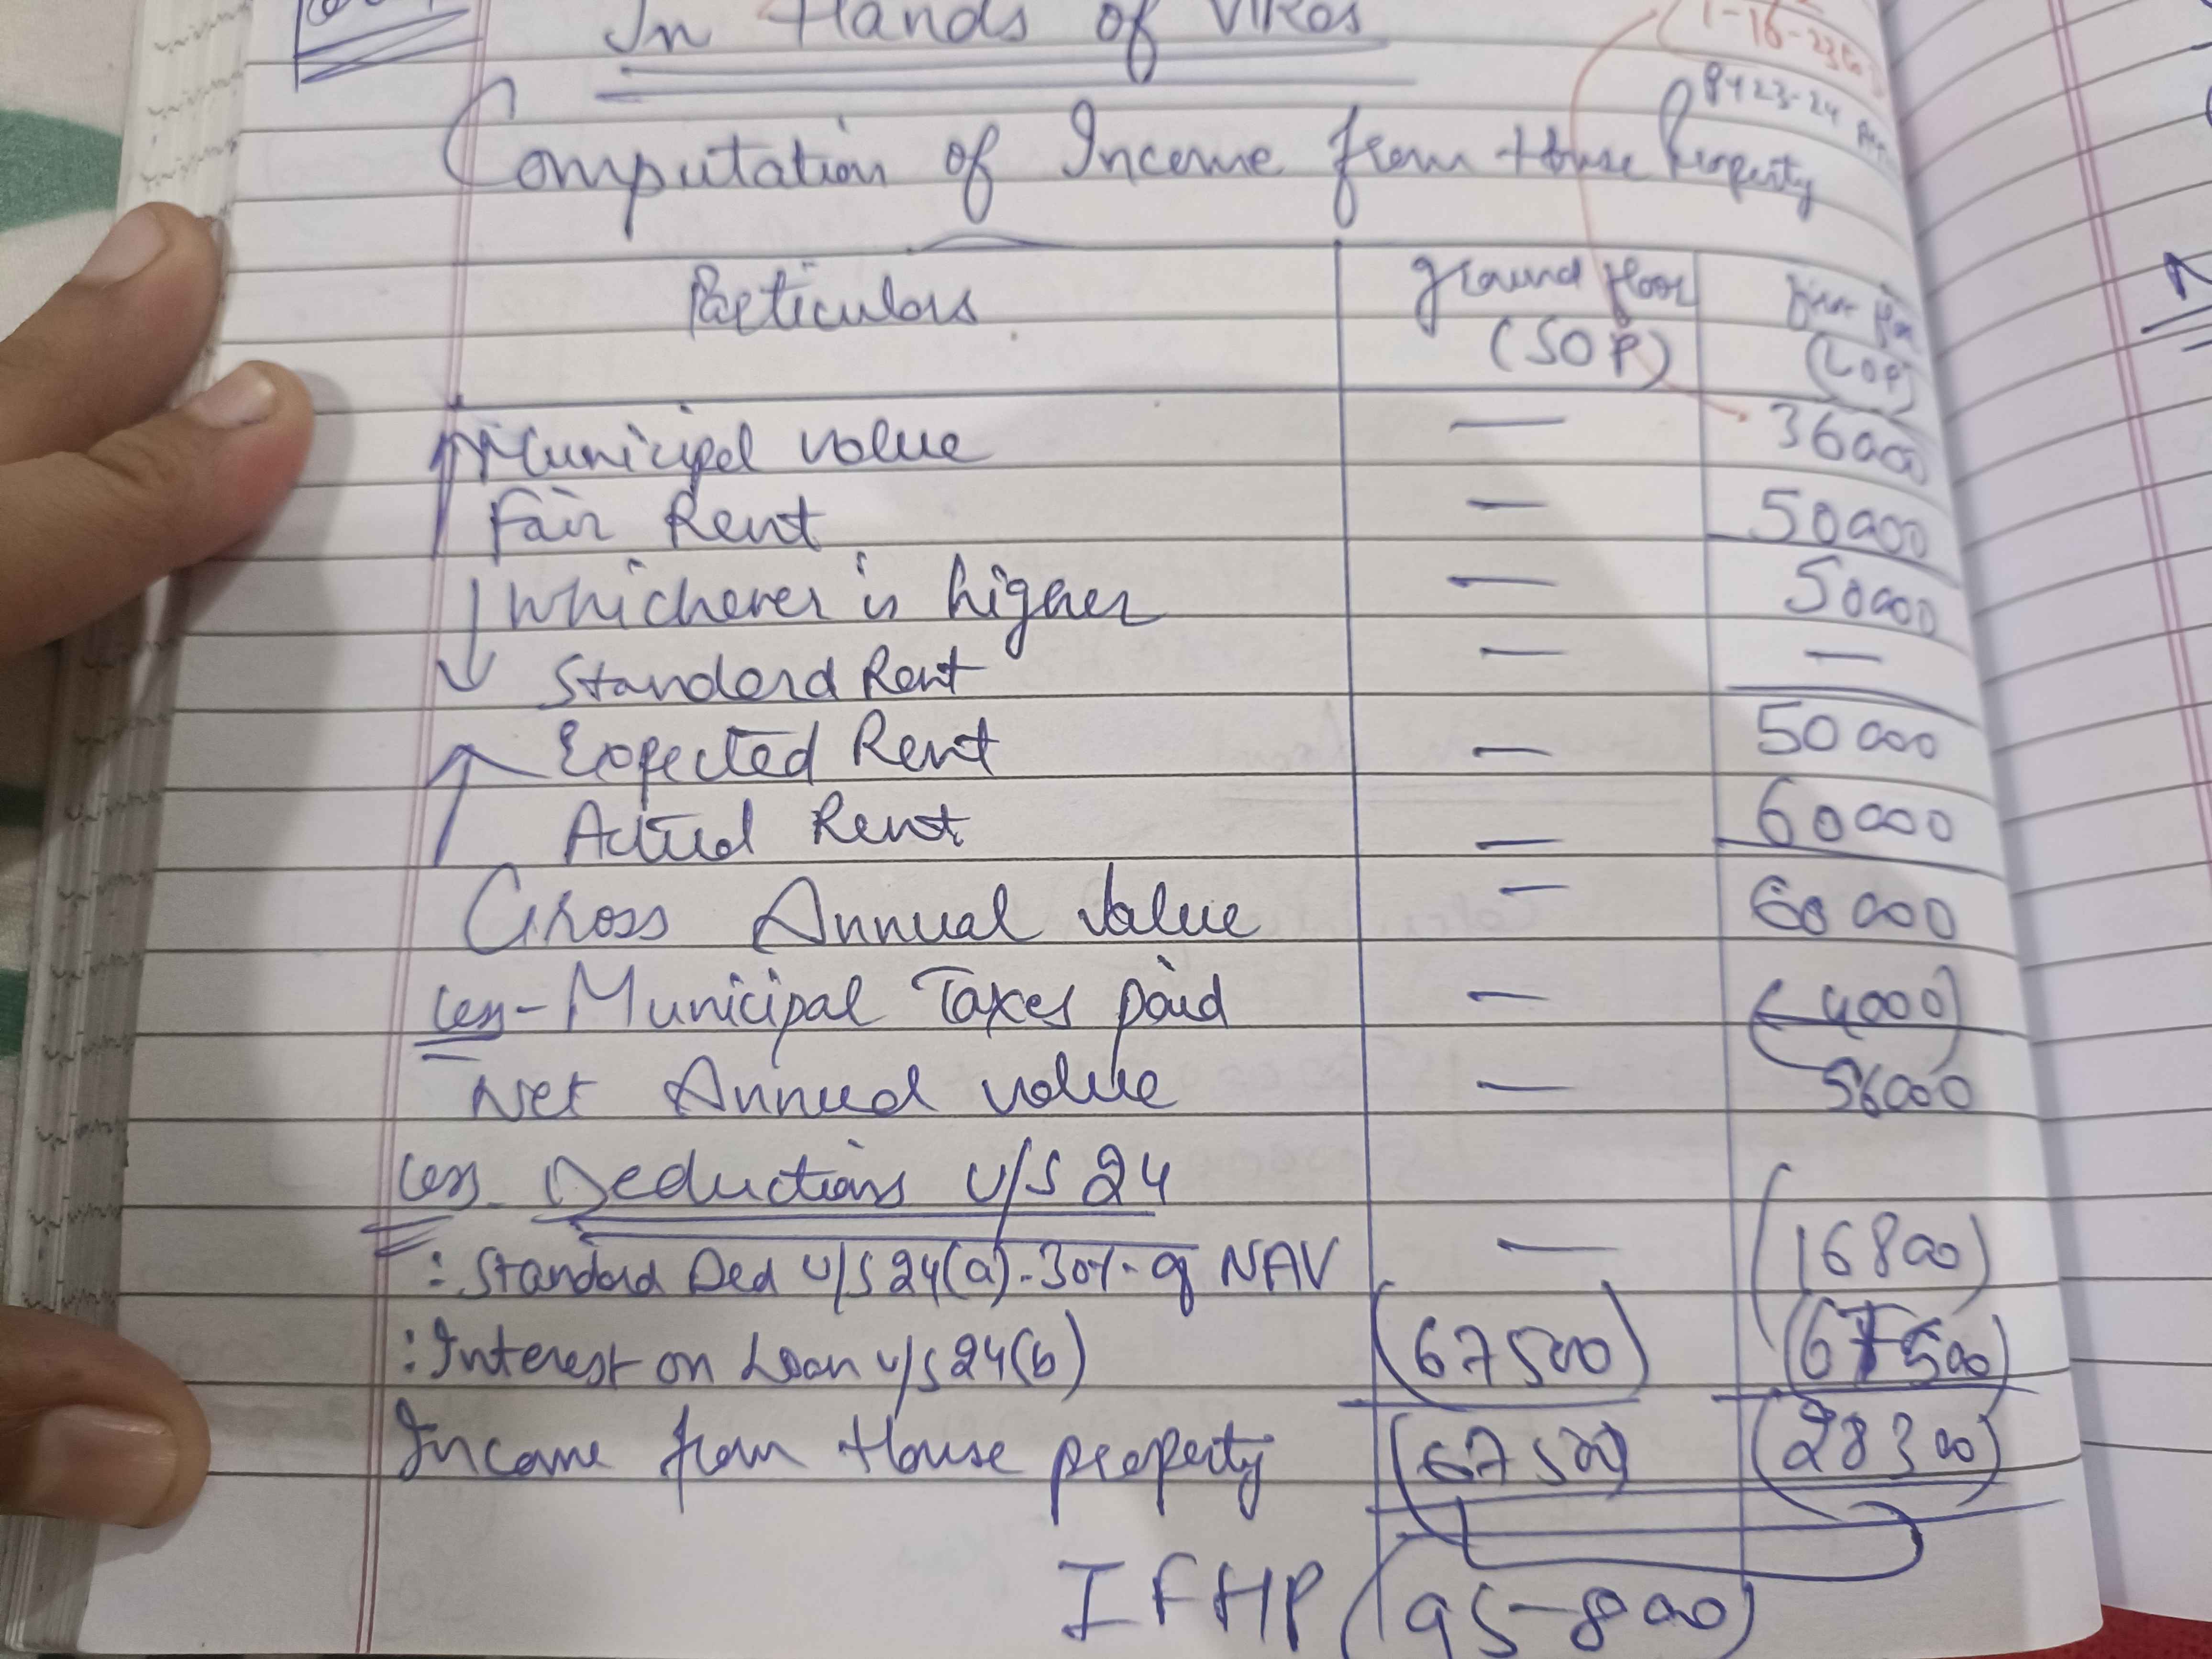 In Hands of Vikas
PY 23-24
Computation of Income from House Property
Particulars ground floor (SOP) first floor (LOP)
Municipal value — 36000
Fair Rent — 50000
Whichever is higher — 50000
Standard Rent — —
Expected Rent — 50000
Actual Rent — 60000
Gross Annual Value — 60000
Less - Municipal Taxes paid — (4000)
Net Annual value — 56000
Less - Deductions U/S 24
: Standard Ded U/S 24(a) - 30% of NAV — (16800)
: Interest on Loan u/s 24(b) (67500) (67500)
Income from House property (67500) (28300)
IFHP (95-800)